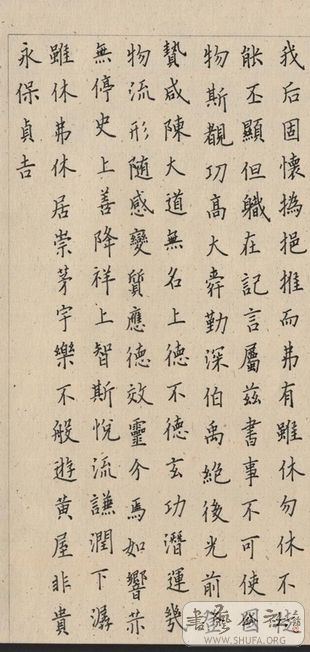 我后固懷撝挹推而弗有雖休勿休不
能丕顯但職在記言屬茲書事不可使
物斯覩功高大舜勤深伯禹絕後光前
贄咸陳大道無名上德不德玄功潛運幾
物流形隨感變質應德效靈介焉如響
無停史上善降祥上智斯悅流謙潤下潺
雖休弗休居崇茅宇樂不般遊黃屋非貴
永保貞吉
WWW.SHUFA.ORG